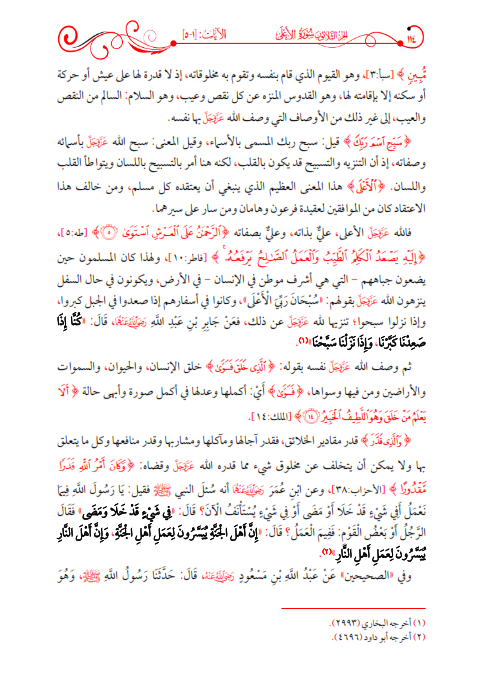 ١١٤ الجزء الثلاثون سُورَةُ الأَعْلَى الآيات: [١-٥]
مُّبِينٍ ﴾ [سبأ:٣]، وهو القيوم الذي قام بنفسه وتقوم به مخلوقاته، إذ لا قدرة لها على عيش أو حركة
أو سكنه إلا بإقامته لها، وهو القدوس المنزه عن كل نقص وعيب، وهو السلام: السالم من النقص
والعيب، إلى غير ذلك من الأوصاف التي وصف الله عَزَّوَجَلَّ بها نفسه.
﴿ سَبِّحِ ٱسْمَ رَبِّكَ ﴾ قيل: سبح ربك المسمى بالأسماء، وقيل المعنى: سبح الله عَزَّوَجَلَّ بأسمائه
وصفاته، إذ أن التنزيه والتسبيح قد يكون بالقلب، لكنه هنا أمر بالتسبيح باللسان ويتواطأ القلب
واللسان. ﴿ ٱلْأَعْلَى ﴾ هذا المعنى العظيم الذي ينبغي أن يعتقده كل مسلم، ومن خالف هذا
الاعتقاد كان من الموافقين لعقيدة فرعون وهامان ومن سار على سيرهما.
فالله عَزَّوَجَلَّ الأعلى، عليٌّ بذاته، وعليٌّ بصفاته ﴿ ٱلرَّحْمَٰنُ عَلَى ٱلْعَرْشِ ٱسْتَوَىٰ ٥ ﴾ [طه:٥]،
﴿ إِلَيْهِ يَصْعَدُ ٱلْكَلِمُ ٱلطَّيِّبُ وَٱلْعَمَلُ ٱلصَّٰلِحُ يَرْفَعُهُۥ ۚ ﴾ [فاطر:١٠]، ولهذا كان المسلمون حين
يضعون جباههم – التي هي أشرف موطن في الإنسان – في الأرض، ويكونون في حال السفل
ينزهون الله عَزَّوَجَلَّ بقولهم: «سُبْحَانَ رَبِّيَ الْأَعْلَى»، وكانوا في أسفارهم إذا صعدوا في الجبل كبروا،
وإذا نزلوا سبحوا؛ تنزيها لله عَزَّوَجَلَّ عن ذلك، فعَنْ جَابِرِ بْنِ عَبْدِ اللَّهِ رَضِيَ اللَّهُ عَنْهُمَا، قَالَ: «كُنَّا إِذَا
صَعِدْنَا كَبَّرْنَا، وَإِذَا نَزَلْنَا سَبَّحْنَا»(١).
ثم وصف الله عَزَّوَجَلَّ نفسه بقوله: ﴿ ٱلَّذِى خَلَقَ فَسَوَّىٰ ﴾ خلق الإنسان، والحيوان، والسموات
والأراضين ومن فيها وسواها، ﴿ فَسَوَّىٰ ﴾ أَيْ: أكملها وعدلها في أكمل صورة وأبهى حالة ﴿ أَلَا
يَعْلَمُ مَنْ خَلَقَ وَهُوَ ٱللَّطِيفُ ٱلْخَبِيرُ ١٤ ﴾ [الملك:١٤].
﴿ وَٱلَّذِى قَدَّرَ ﴾ قدر مقادير الخلائق، فقدر آجالها ومآكلها ومشاربها وقدر منافعها وكل ما يتعلق
بها ولا يمكن أن يتخلف عن مخلوق شيء مما قدره الله عَزَّوَجَلَّ وقضاه: ﴿ وَكَانَ أَمْرُ ٱللَّهِ قَدَرًا
مَّقْدُورًا ﴾ [الأحزاب:٣٨]، وعن ابْنِ عُمَرَ رَضِيَ اللَّهُ عَنْهُمَا أنه سُئِلَ النبي ﷺ فقيل: يَا رَسُولَ اللَّهِ فِيمَا
نَعْمَلُ أَفِي شَيْءٍ قَدْ خَلَا أَوْ مَضَى أَوْ فِي شَيْءٍ يُسْتَأْنَفُ الْآنَ؟ قَالَ: «فِي شَيْءٍ قَدْ خَلَا وَمَضَى» فَقَالَ
الرَّجُلُ أَوْ بَعْضُ الْقَوْمِ: فَفِيمَ الْعَمَلُ؟ قَالَ: «إِنَّ أَهْلَ الْجَنَّةِ يُيَسَّرُونَ لِعَمَلِ أَهْلِ الْجَنَّةِ، وَإِنَّ أَهْلَ النَّارِ
يُيَسَّرُونَ لِعَمَلِ أَهْلِ النَّارِ»(٢).
وفي «الصحيحين» عَنْ عَبْدِ اللَّهِ بْنِ مَسْعُودٍ رَضِيَ اللَّهُ عَنْهُ، قَالَ: حَدَّثَنَا رَسُولُ اللَّهِ ﷺ، وَهُوَ
(١) أخرجه البخاري (٢٩٩٣).
(٢) أخرجه أبو داود (٤٦٩٦).